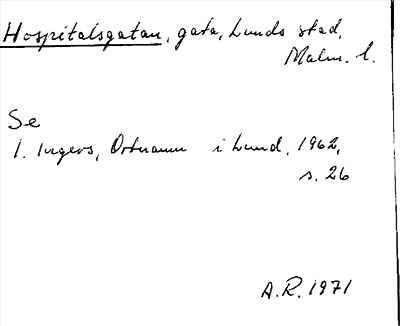 Hospitalsgatan, gata, Lunds stad,
Malm. l.
Se
I. Ingers, Ortnamn i Lund, 1962,
s. 26
A.R. 1971